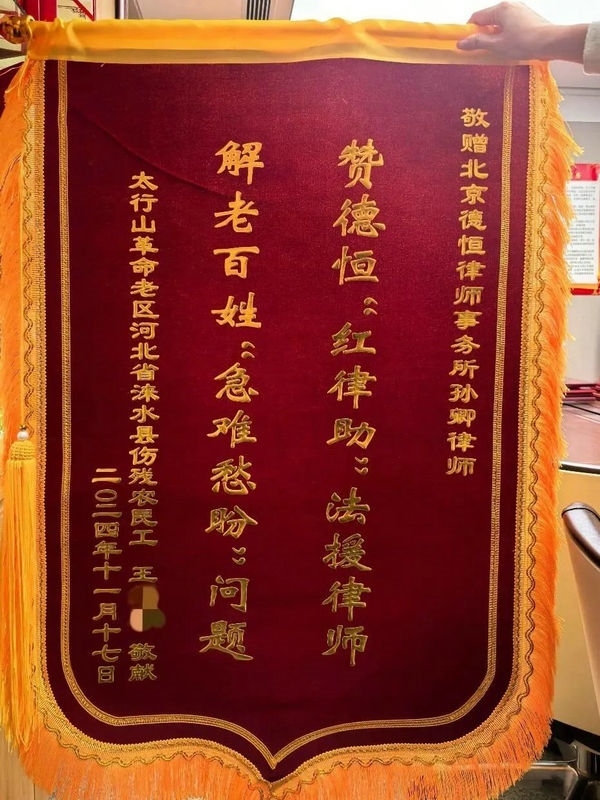 敬赠北京德恒律师事务所孙卿律师
赞德恒“红律助”法援律师
解老百姓“急难愁盼”问题
太行山革命老区河北省涞水县伤残农民工 王 敬献
二〇二四年十一月十七日